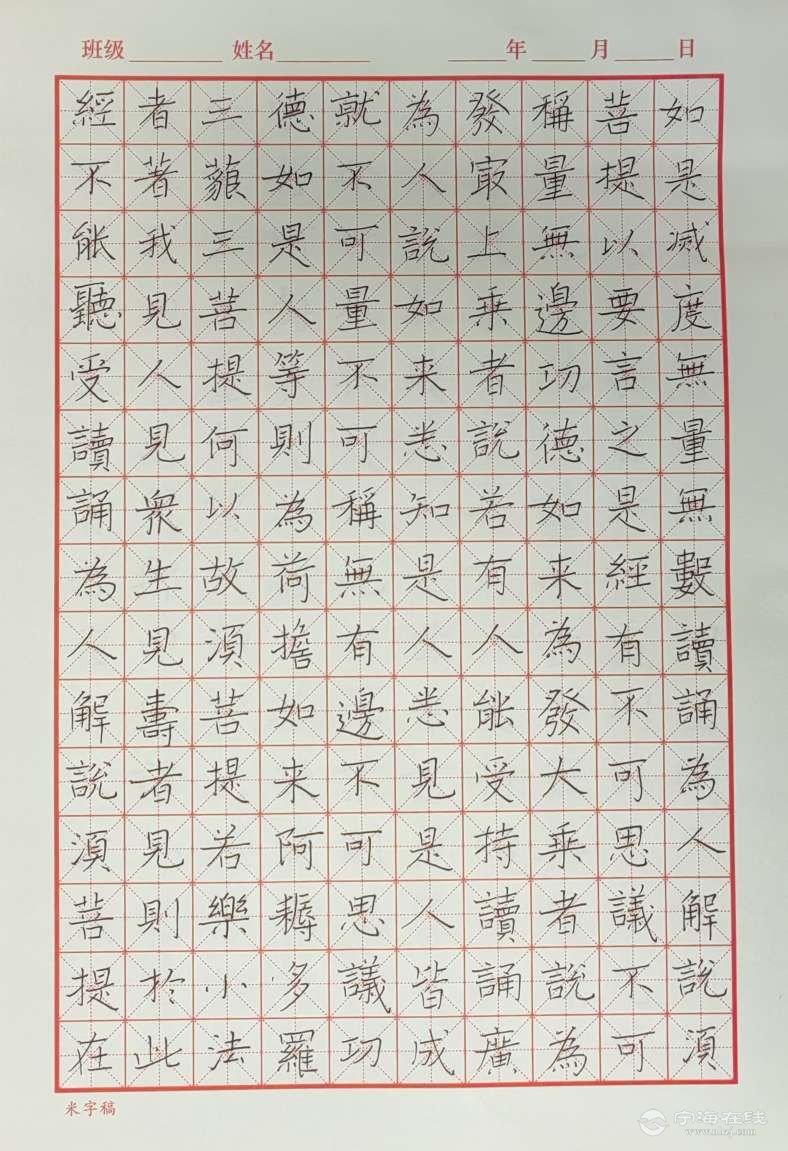 班级 姓名 年 月 日
如是滅度無量無數讀誦為人解說須
菩提以要言之是經有不可思議不可
稱量無邊功德如来為發大乘者說為
發冣上乘者說若有人能受持讀誦廣
為人說如来悉知是人悉見是人皆成
就不可量不可稱無有邊不可思議功
德如是人等則為荷擔如来阿耨多羅
三藐三菩提何以故須菩提若樂小法
者著我見人見衆生見壽者見則於此
經不能聽受讀誦為人解說須菩提在
米字稿
宁海在线
www.nhzj.com